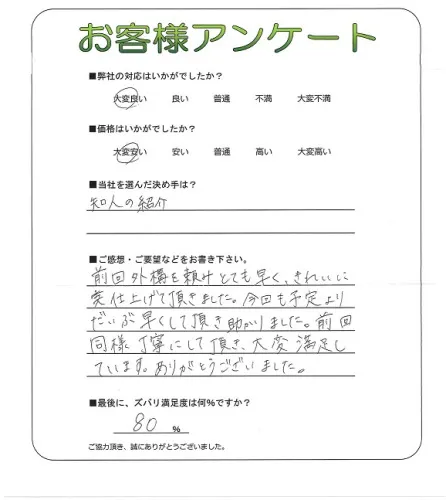 お客様アンケート
■弊社の対応はいかがでしたか？
大変良い 良い 普通 不満 大変不満
■価格はいかがでしたか？
大変安い 安い 普通 高い 大変高い
■当社を選んだ決め手は？
知人の紹介
■ご感想・ご要望などをお書き下さい。
前回外構を頼みとても早く、きれいに
仕上げて頂きました。今回も予定より
だいぶ早くして頂き助かりました。前回
同様丁寧にして頂き、大変満足し
ています。ありがとうございました。
■最後に、ズバリ満足度は何%ですか？
80 %
ご協力頂き、誠にありがとうございました。